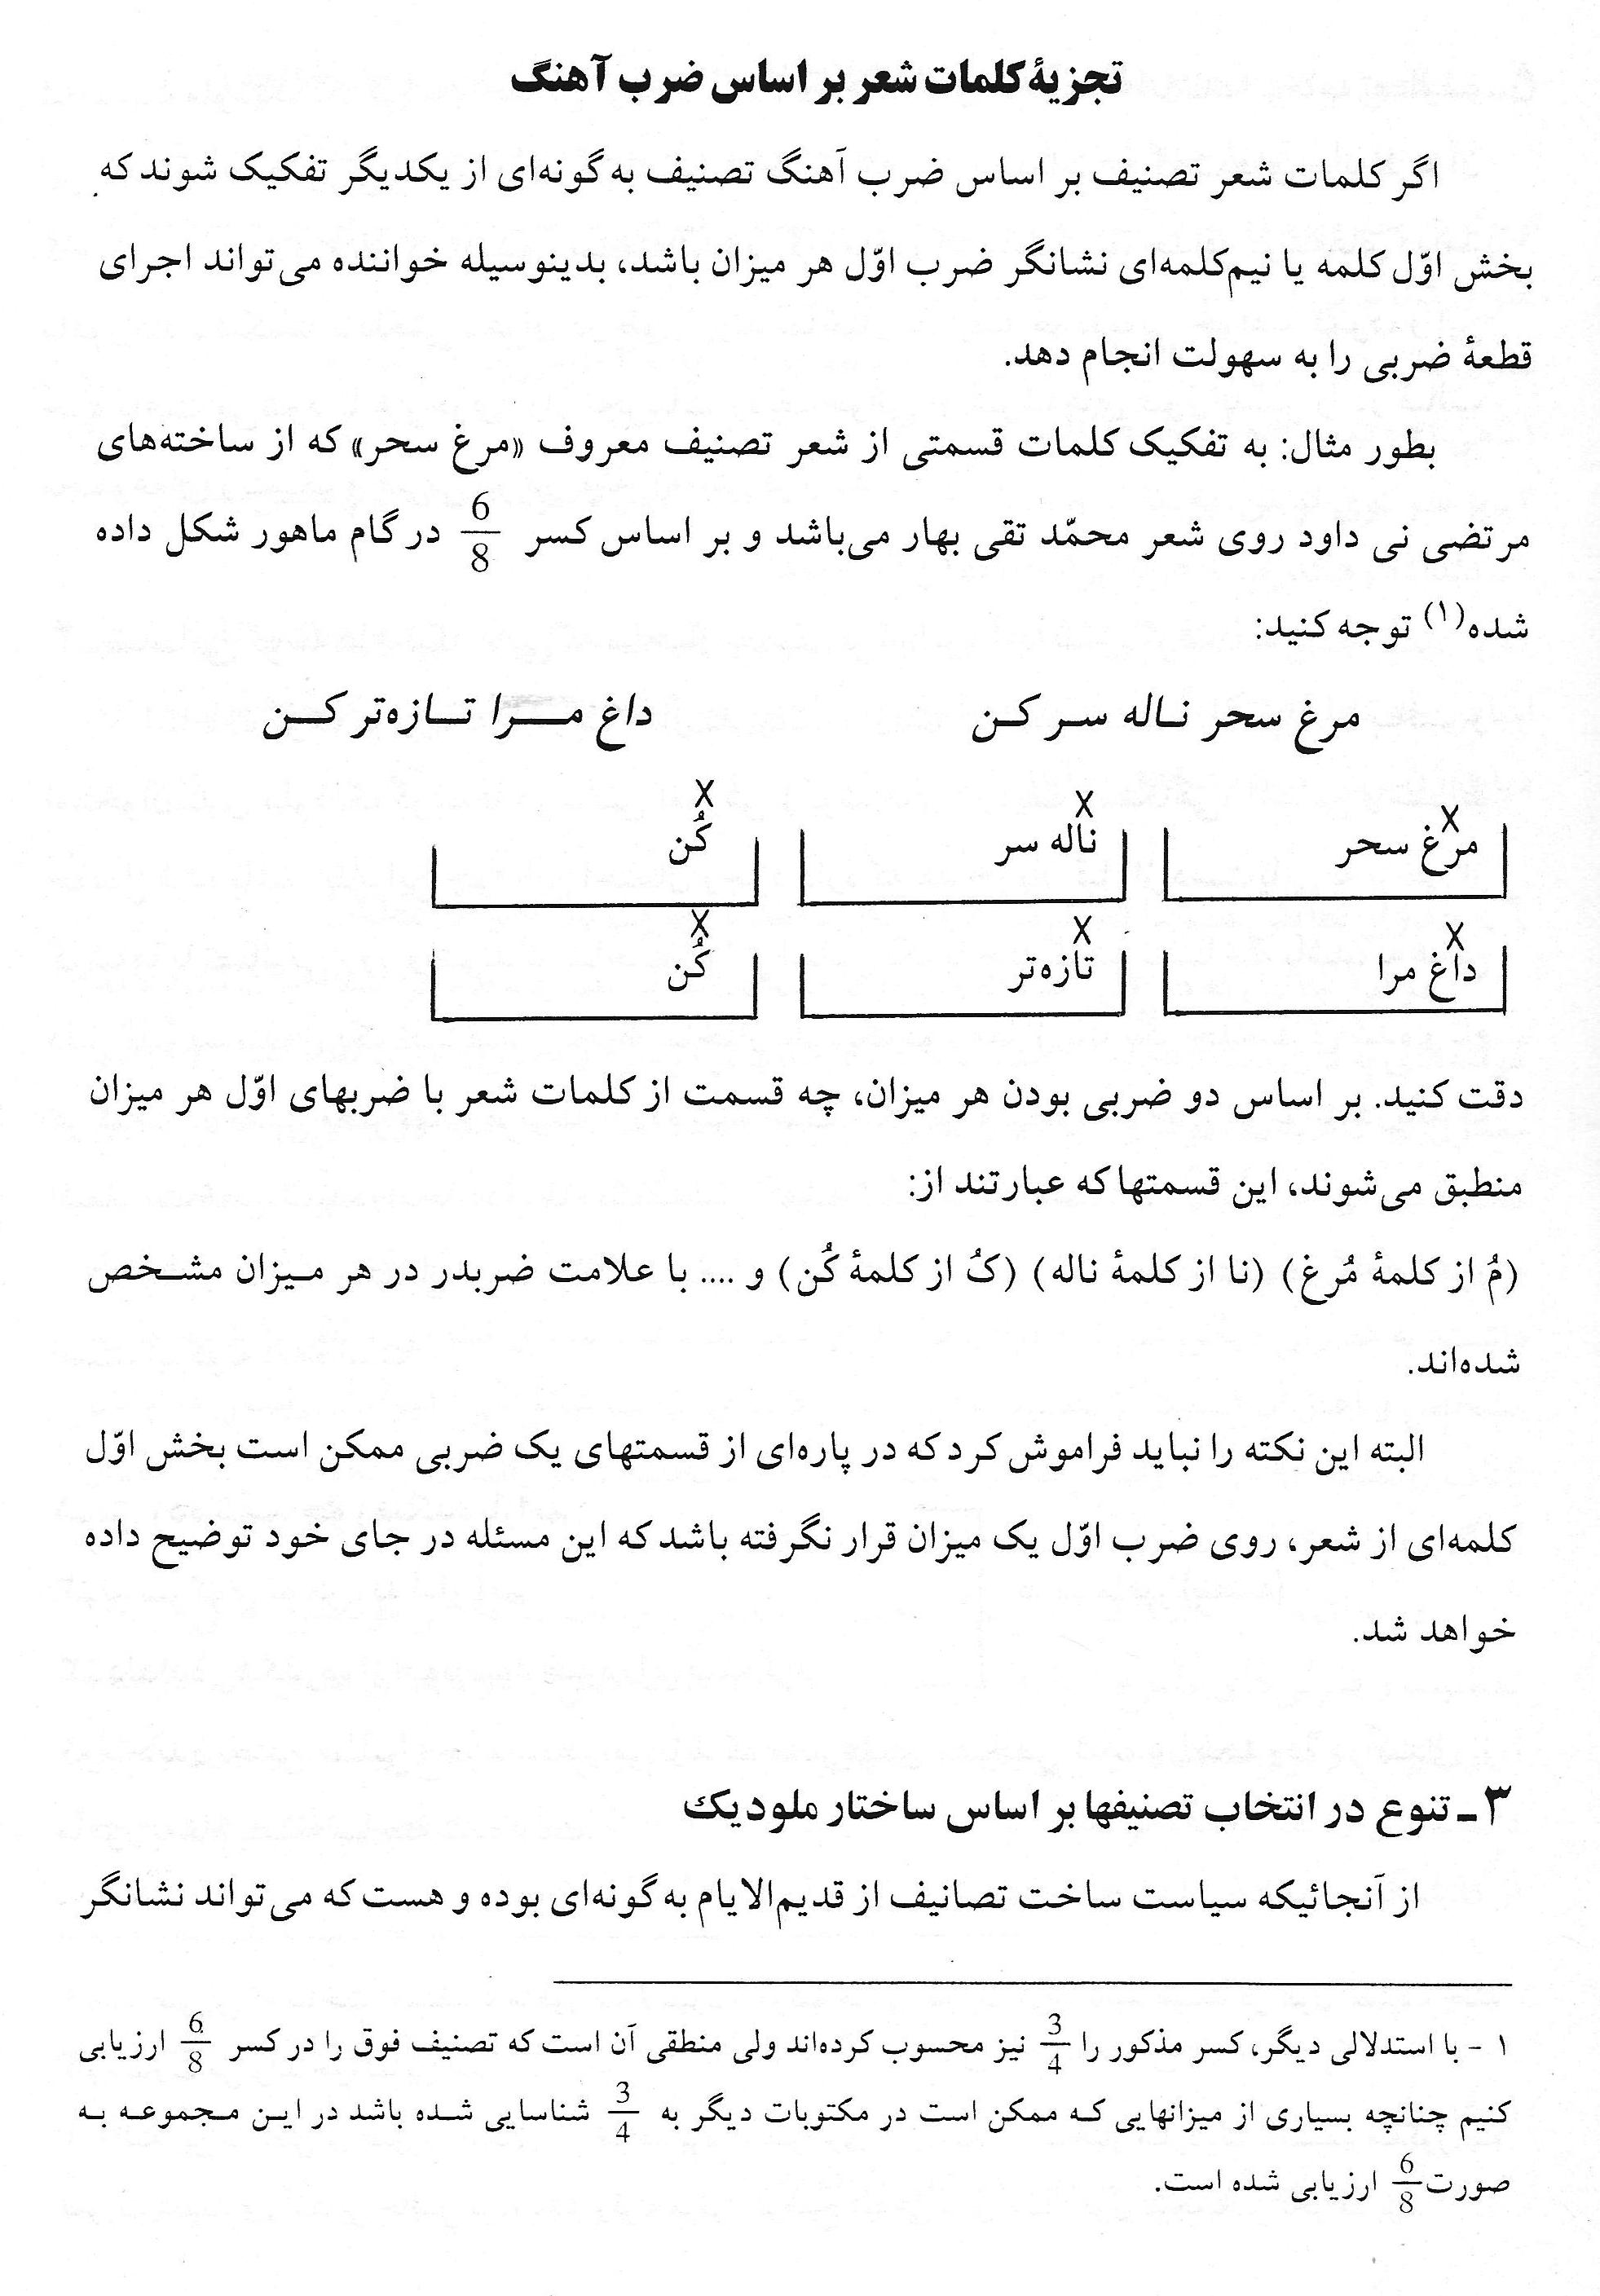 تجزیهٔ کلمات شعر بر اساس ضرب آهنگ
اگر کلمات شعر تصنیف بر اساس ضرب آهنگ تصنیف به گونه‌ای از یکدیگر تفکیک شوند که
بخش اوّل کلمه یا نیم‌کلمه‌ای نشانگر ضرب اوّل هر میزان باشد، بدینوسیله خواننده می‌تواند اجرای
قطعهٔ ضربی را به سهولت انجام دهد.
بطور مثال: به تفکیک کلمات قسمتی از شعر تصنیف معروف «مرغ سحر» که از ساخته‌های
مرتضی نی داود روی شعر محمّد تقی بهار می‌باشد و بر اساس کسر 6/8 در گام ماهور شکل داده
شده(۱) توجه کنید:
مرغ سحر ناله سر کن داغ مرا تازه‌تر کن
X X X
مرغ سحر ناله سر کُن
X X X
داغ مرا تازه‌تر کُن
دقت کنید. بر اساس دو ضربی بودن هر میزان، چه قسمت از کلمات شعر با ضربهای اوّل هر میزان
منطبق می‌شوند، این قسمتها که عبارتند از:
(مُ از کلمهٔ مُرغ) (نا از کلمهٔ ناله) (کُ از کلمهٔ کُن) و .... با علامت ضربدر در هر میزان مشخص
شده‌اند.
البته این نکته را نباید فراموش کرد که در پاره‌ای از قسمتهای یک ضربی ممکن است بخش اوّل
کلمه‌ای از شعر، روی ضرب اوّل یک میزان قرار نگرفته باشد که این مسئله در جای خود توضیح داده
خواهد شد.
۳ ـ تنوع در انتخاب تصنیفها بر اساس ساختار ملودیک
از آنجائیکه سیاست ساخت تصانیف از قدیم‌الایام به گونه‌ای بوده و هست که می‌تواند نشانگر
۱ - با استدلالی دیگر، کسر مذکور را 3/4 نیز محسوب کرده‌اند ولی منطقی آن است که تصنیف فوق را در کسر 6/8 ارزیابی
کنیم چنانچه بسیاری از میزانهایی که ممکن است در مکتوبات دیگر به 3/4 شناسایی شده باشد در این مجموعه به
صورت 6/8 ارزیابی شده است.